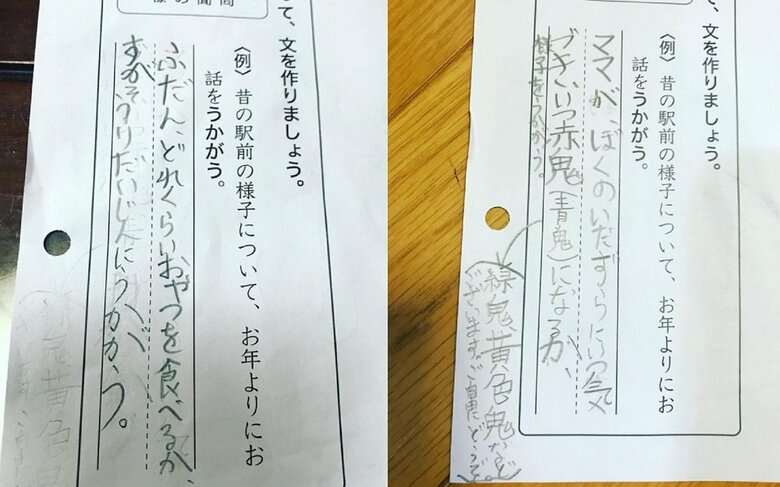 って、文を作りましょう。
〈例〉昔の駅前の様子について、お年よりにお
話をうかがう。
ふだん、どれくらいおやつを食べるか、
すがそうりだいじんにうかがう。
て、文を作りましょう。
〈例〉昔の駅前の様子について、お年よりにお
話をうかがう。
ママが、ぼくのいだずらにいつ気
づき、いつ赤鬼(青鬼)になるか、
様子をうかがう。
(緑鬼黄色鬼など
ございます。ご自由にどうぞ。)